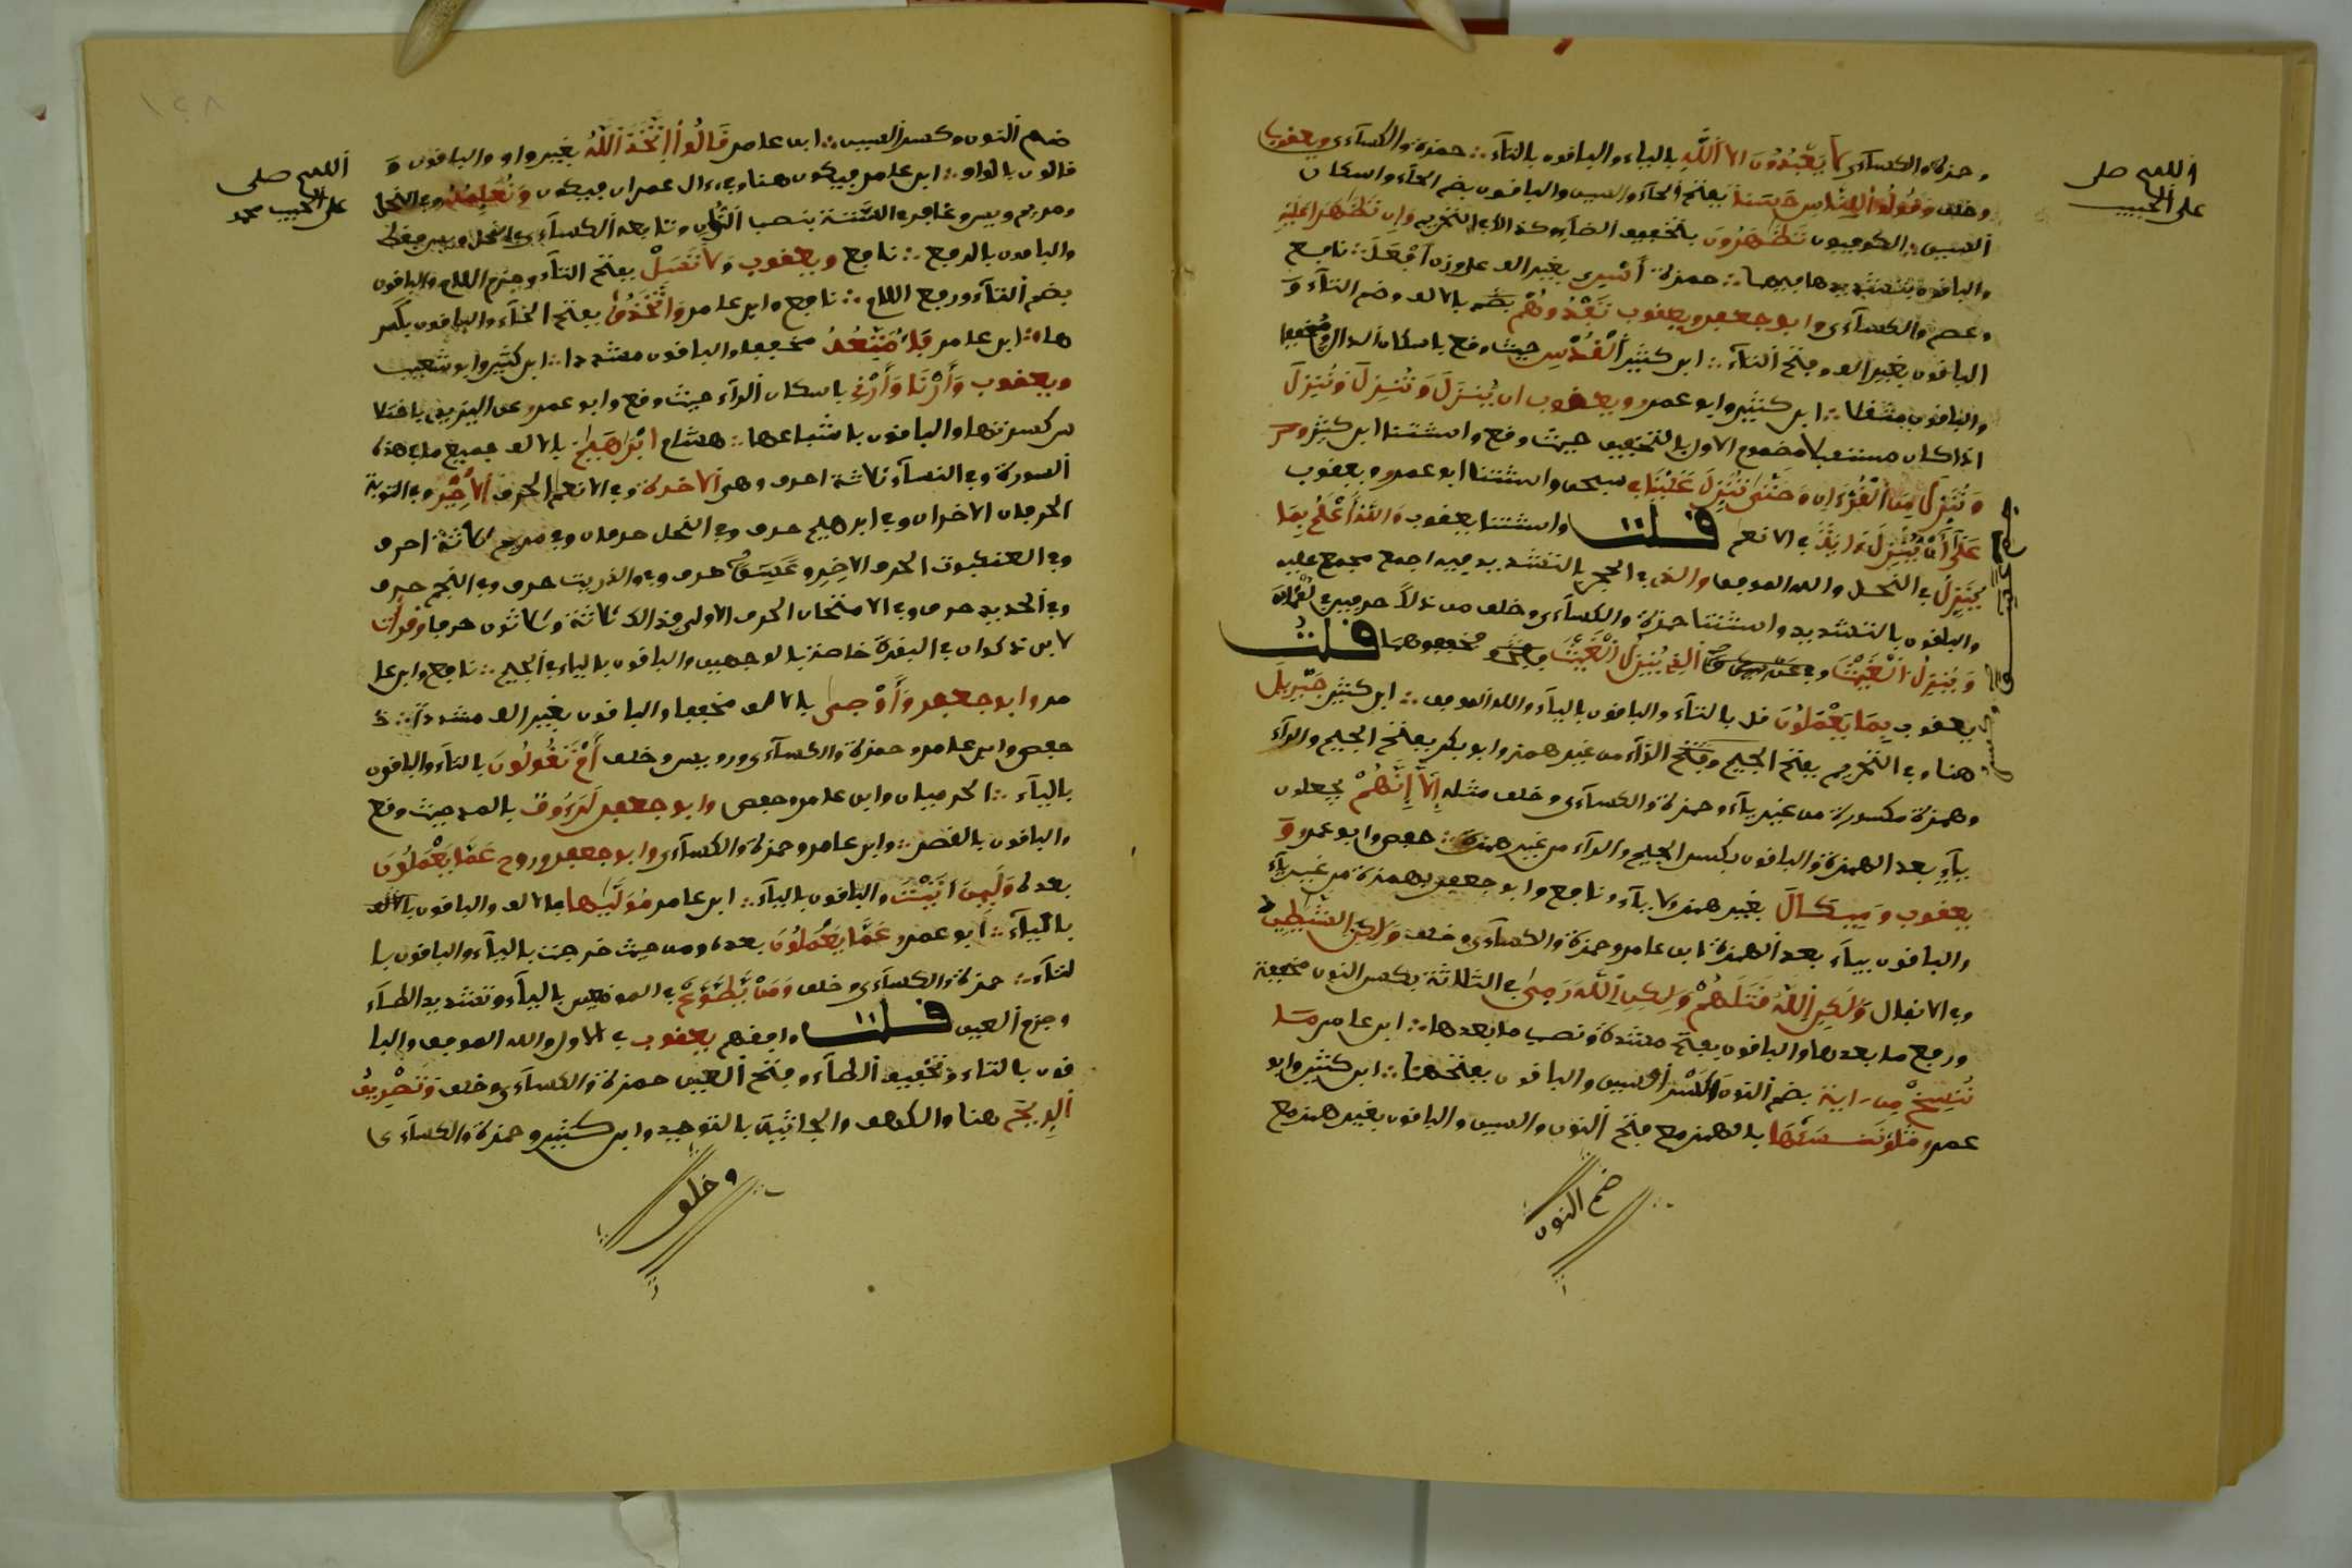 اللهم صل
على الحبيب
وحمزة والكسآءى لا يَعْبُدُونَ الا اَللَّهَ بالياء والباقون بالتآء ∴ حمزة والكسآءى ويعقوب
وخلف وَقُولُواْ لِلنَّاسِ حَسَناً بفتح الحآء والسين والباقون بضم الحآء واسكان
السين ∴ الكوفيون تَظَٰهَرُونَ بتخفيف الظآء وكذا في التحريم وَإِن تَظَٰهَرَا عَلَيْهِ
والباقون بتشديدها فيهما ∴ حمزة أَسْرىٰ بغير الف على وزن أَفْعَلَ ∴ نافع
وعصم والكسآءى وابو جعفر ويعقوب تُفَٰدُوهُمْ بضم بالالف وضم التآء وَ
الباقون بغير الف وفتح التآء ∴ ابن كثير اَلْقُدْسِ حيث وقع باسكان الدال مخففا
والباقون مثقلا ∴ ابن كثير وابو عمرو ويعقوب ان يُنزِلَ وَتُنزِلَ وَنُنزِلَ
اذا كان مستقبلا مضموم الاول بالتخفيف حيث وقع واستثنا ابن كثير
وَنُنَزِّلُ مِنَ اَلْقُرْءَانِ وَحَتَّىٰ تُنَزِّلَ عَلَيْنَا في سبحن واستثنا ابو عمرو ويعقوب
عَلَىٰٓ أَنْ يُّنَزِّلَ ءَايَةً في الانعم قلت واستثنا يعقوب وَاللَّهُ أَعْلَمُ بِمَا
يُنَزِّلُ في النحل والله الموفق والذى في الحجر بالتشديد فيه اجمع مجمع عليه
والباقون بالتشديد واستثنا حمزة والكسآءى وخلف من ذلك حرفين في لقمان
وَيُنَزِّلُ اَلْغَيْثَ وفي عسق اَلذِے يُنَزِّلُ اُلْغَيْثَ مخففوهما قلت
يعقوب بِمَا يَعْمَلُونَ قل بالتآء والباقون باليآء والله الموفق ∴ ابن كثير جَبْرِيلَ
هنا وفي التحريم بفتح الجيم وكسر الرآء من غير همز وابو بكر بفتح الجيم والرآء
وهمزة مكسورة من غير يآء وحمزة والكسآءى وخلف مثله إِلَّآ إِنَّهُمْ يجعلون
يآء بعد الهمزة والباقون بكسر الجيم والرآء من غير همزة ∴ حفص وابو عمرو وَ
يعقوب وَمِيكَالَ بغير همز ولا يآء ونافع وابو جعفر بهمزة من غير يآء
والباقون بيآء بعد الهمزة ∴ ابن عامر وحمزة والكسآءى وخلف وَلَٰكِنِ الشَّيَٰطِينُ
وفي الانفال وَلَٰكِنِ اِللَّهُ قَتَلَهُمْ وَلَٰكِنِ اِللَّهُ رَمىٰ في الثلاثة بكسر النون مخففة
ورفع ما بعدها والباقون بفتح مشددة ونصب ما بعدها ∴ ابن عامر مَا
نُنسِخْ مِنَ ـايَة بضم النون وكسر السين والباقون بفتحهما ∴ ابن كثير وابو
عمرو أَوْ نَنسَأْهَا بالهمز مع فتح النون والسين والباقون بغير همز مع
ضم النون
اللهم صل
على الحبيب محمد
ضم النون وكسر السين ∴ ابن عامر قَالُواْ اُتَّخَذَ اَللَّهُ بغير واو والباقون وَ
قالوا بالواو ∴ ابن عامر فيكون هنا وفي ءال عمران فيكون وَنُعَلِّمُهُ وفي النحل
ومريم ويس وغافر في الستة بنصب النون وتابعه الكسآءى في النحل ويس فقط
والباقون بالرفع ∴ نافع ويعقوب وَلَا تَسْـَٔلْ بفتح التآء وجزم اللام والباقون
بضم التآء ورفع اللام ∴ نافع وابن عامر وَاتَّخَذُواْ بفتح الخآء والباقون بكسر
ها ∴ ابن عامر فَأُمْتِعُهُ مخففا والباقون مشددا ∴ ابن كثير وابو شعيب
ويعقوب وَأَرْنَا وَأَرْنِے باسكان الرآء حيث وقع وابو عمرو عن اليزيدى باختلا
س كسرتها والباقون باشباعها ∴ هشام اِبْرَاهَٰمَ بالالف جميع ما في هذه
السورة وفي النسآء ثلاثة احرف وهى الاخرة وفي الانعم الحرف الاخير وفي التوبة
الحرفان الاخران وفي ابرهيم حرف وفي النحل حرفان وفي مريم ثلاثة احرف
وفي العنكبوت الحرف الاخير وعسق حرف وفي والذريت حرف وفي النجم حرف
وفي الحديد حرف وفي الامتحان الحرف الاول فذلك ثلاثة وثلاثون حرفا وقرأت
لابن ذكوان في البقرة خاصة بالوجهين والباقون بالياء في الجميع ∴ نافع وابن عا
مر وابو جعفر وَأَوْصىٰ بالالف مخففا والباقون بغير الف مشددا ∴
حفص وابن عامر وحمزة والكسآءى ورويس وخلف أَمْ تَقُولُونَ بالتآء والباقون
باليآء ∴ الحرميان وابن عامر وحفص وابو جعفر لَرَءُوفٌ بالمد حيث وقع
والباقون بالقصر ∴ وابن عامر وحمزة والكسآءى وابو جعفر وروح عَمَّا يَعْمَلُونَ
بعده وَلَئِنَ اَتَيْتَ والباقون باليآء ∴ ابن عامر مُوَلَّىٰهَا بالالف والباقون
باليآء ∴ أبو عمرو عَمَّا يَعْمَلُونَ بعده ومن حيث خرجت باليآء والباقون با
لتآء ∴ حمزة والكسآءى وخلف وَمَنْ يَّطَّوَّعْ في الموضعين باليآء وتشديد الطآء
وجزم العين قلت وافقهم يعقوب في الاول والله الموفق والبا
قون بالتاء وتخفيف الطآء وفتح العين حمزة والكسآءى وخلف وَتَصْرِيفِ
اِلرِّيحِ هنا والكهف والجاثية بالتوحيد وابن كثير وحمزة والكسآءى
وخلف